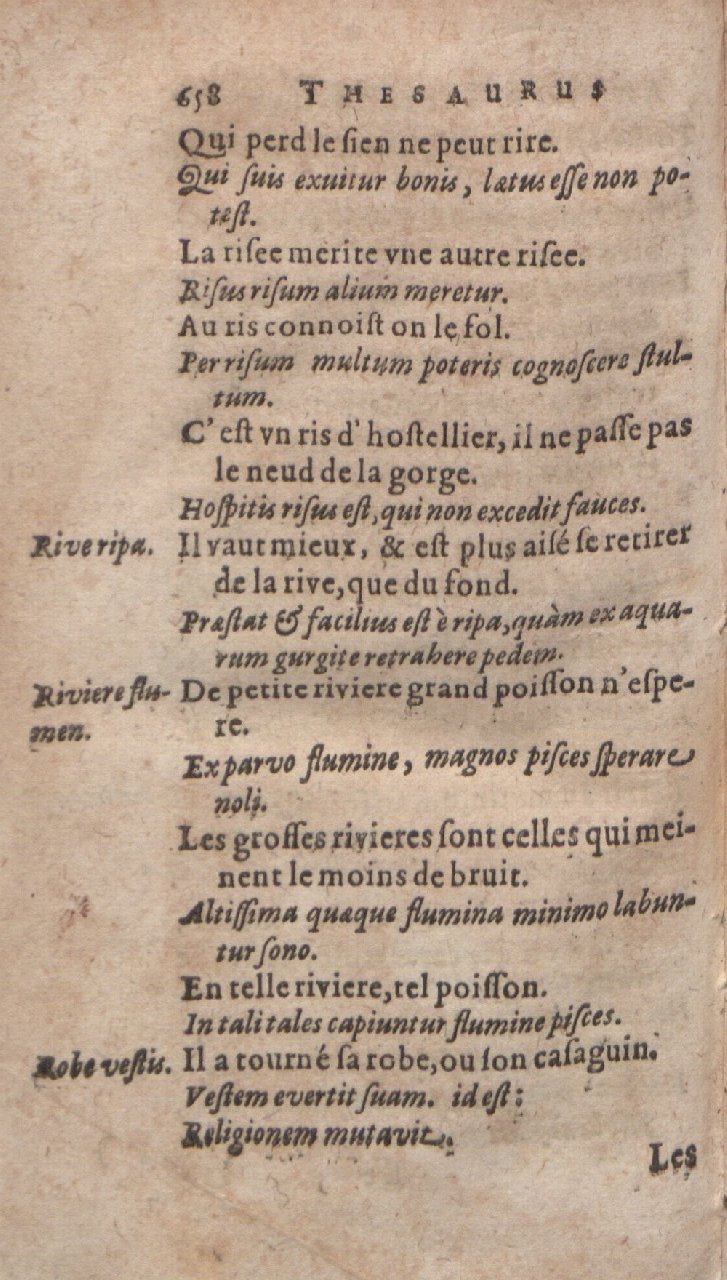 658 THESAURUS
Qui perd le ſien ne peut rire.
Qui ſuis exuitur bonis, lætus eſſe non po-
teſt.
La riſee merite vne autre riſee.
Riſus riſum alium meretur.
Au ris connoiſt on le fol.
Per riſum multum poteris cognoſcere ſtul-
tum.
C'eſt vn ris d'hoſtellier, il ne paſſe pas
le neud de la gorge.
Hoſpitis riſus eſt, qui non excedit fauces.
Rive ripa. Il vaut mieux, & eſt plus aiſé ſe retirer
de la rive, que du fond.
Præſtat & facilius eſt è ripa, quàm ex aqua-
rum gurgite retrahere pedem.
Riviere flu- De petite riviere grand poiſſon n'eſpe-
men. re.
Ex parvo flumine, magnos piſces ſperare
noli.
Les groſſes rivieres ſont celles qui mei-
nent le moins de bruit.
Altiſſima quæque flumina minimo labun-
tur ſono.
En telle riviere, tel poiſſon.
In tali tales capiuntur flumine piſces.
Robe veſtis. Il a tourné ſa robe, ou ſon caſaguin.
Veſtem evertit ſuam. id eſt:
Religionem mutavit.
Les